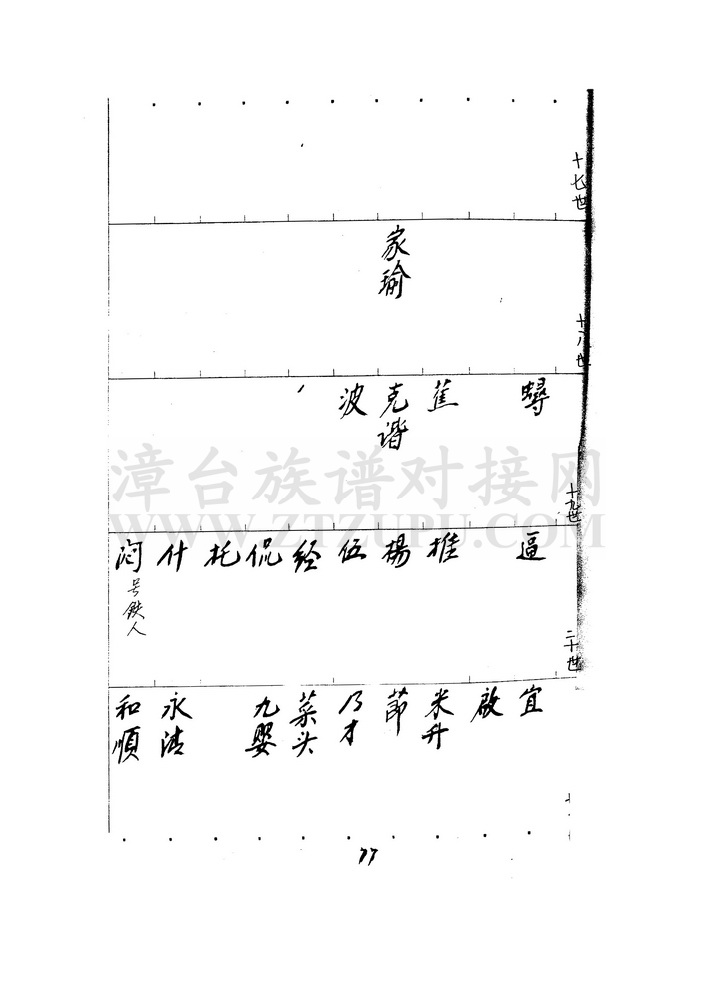 十七世
家瑜
十八世
蟳
蕉
克谐
波
十九世
逼
推
楊
伍
经
侃
托
什
号铁人
二十世
宜
啟
米升
節
乃才
菜头
九婴
永清
和順
77
漳台族谱对接网
WWW.ZTZUPU.COM